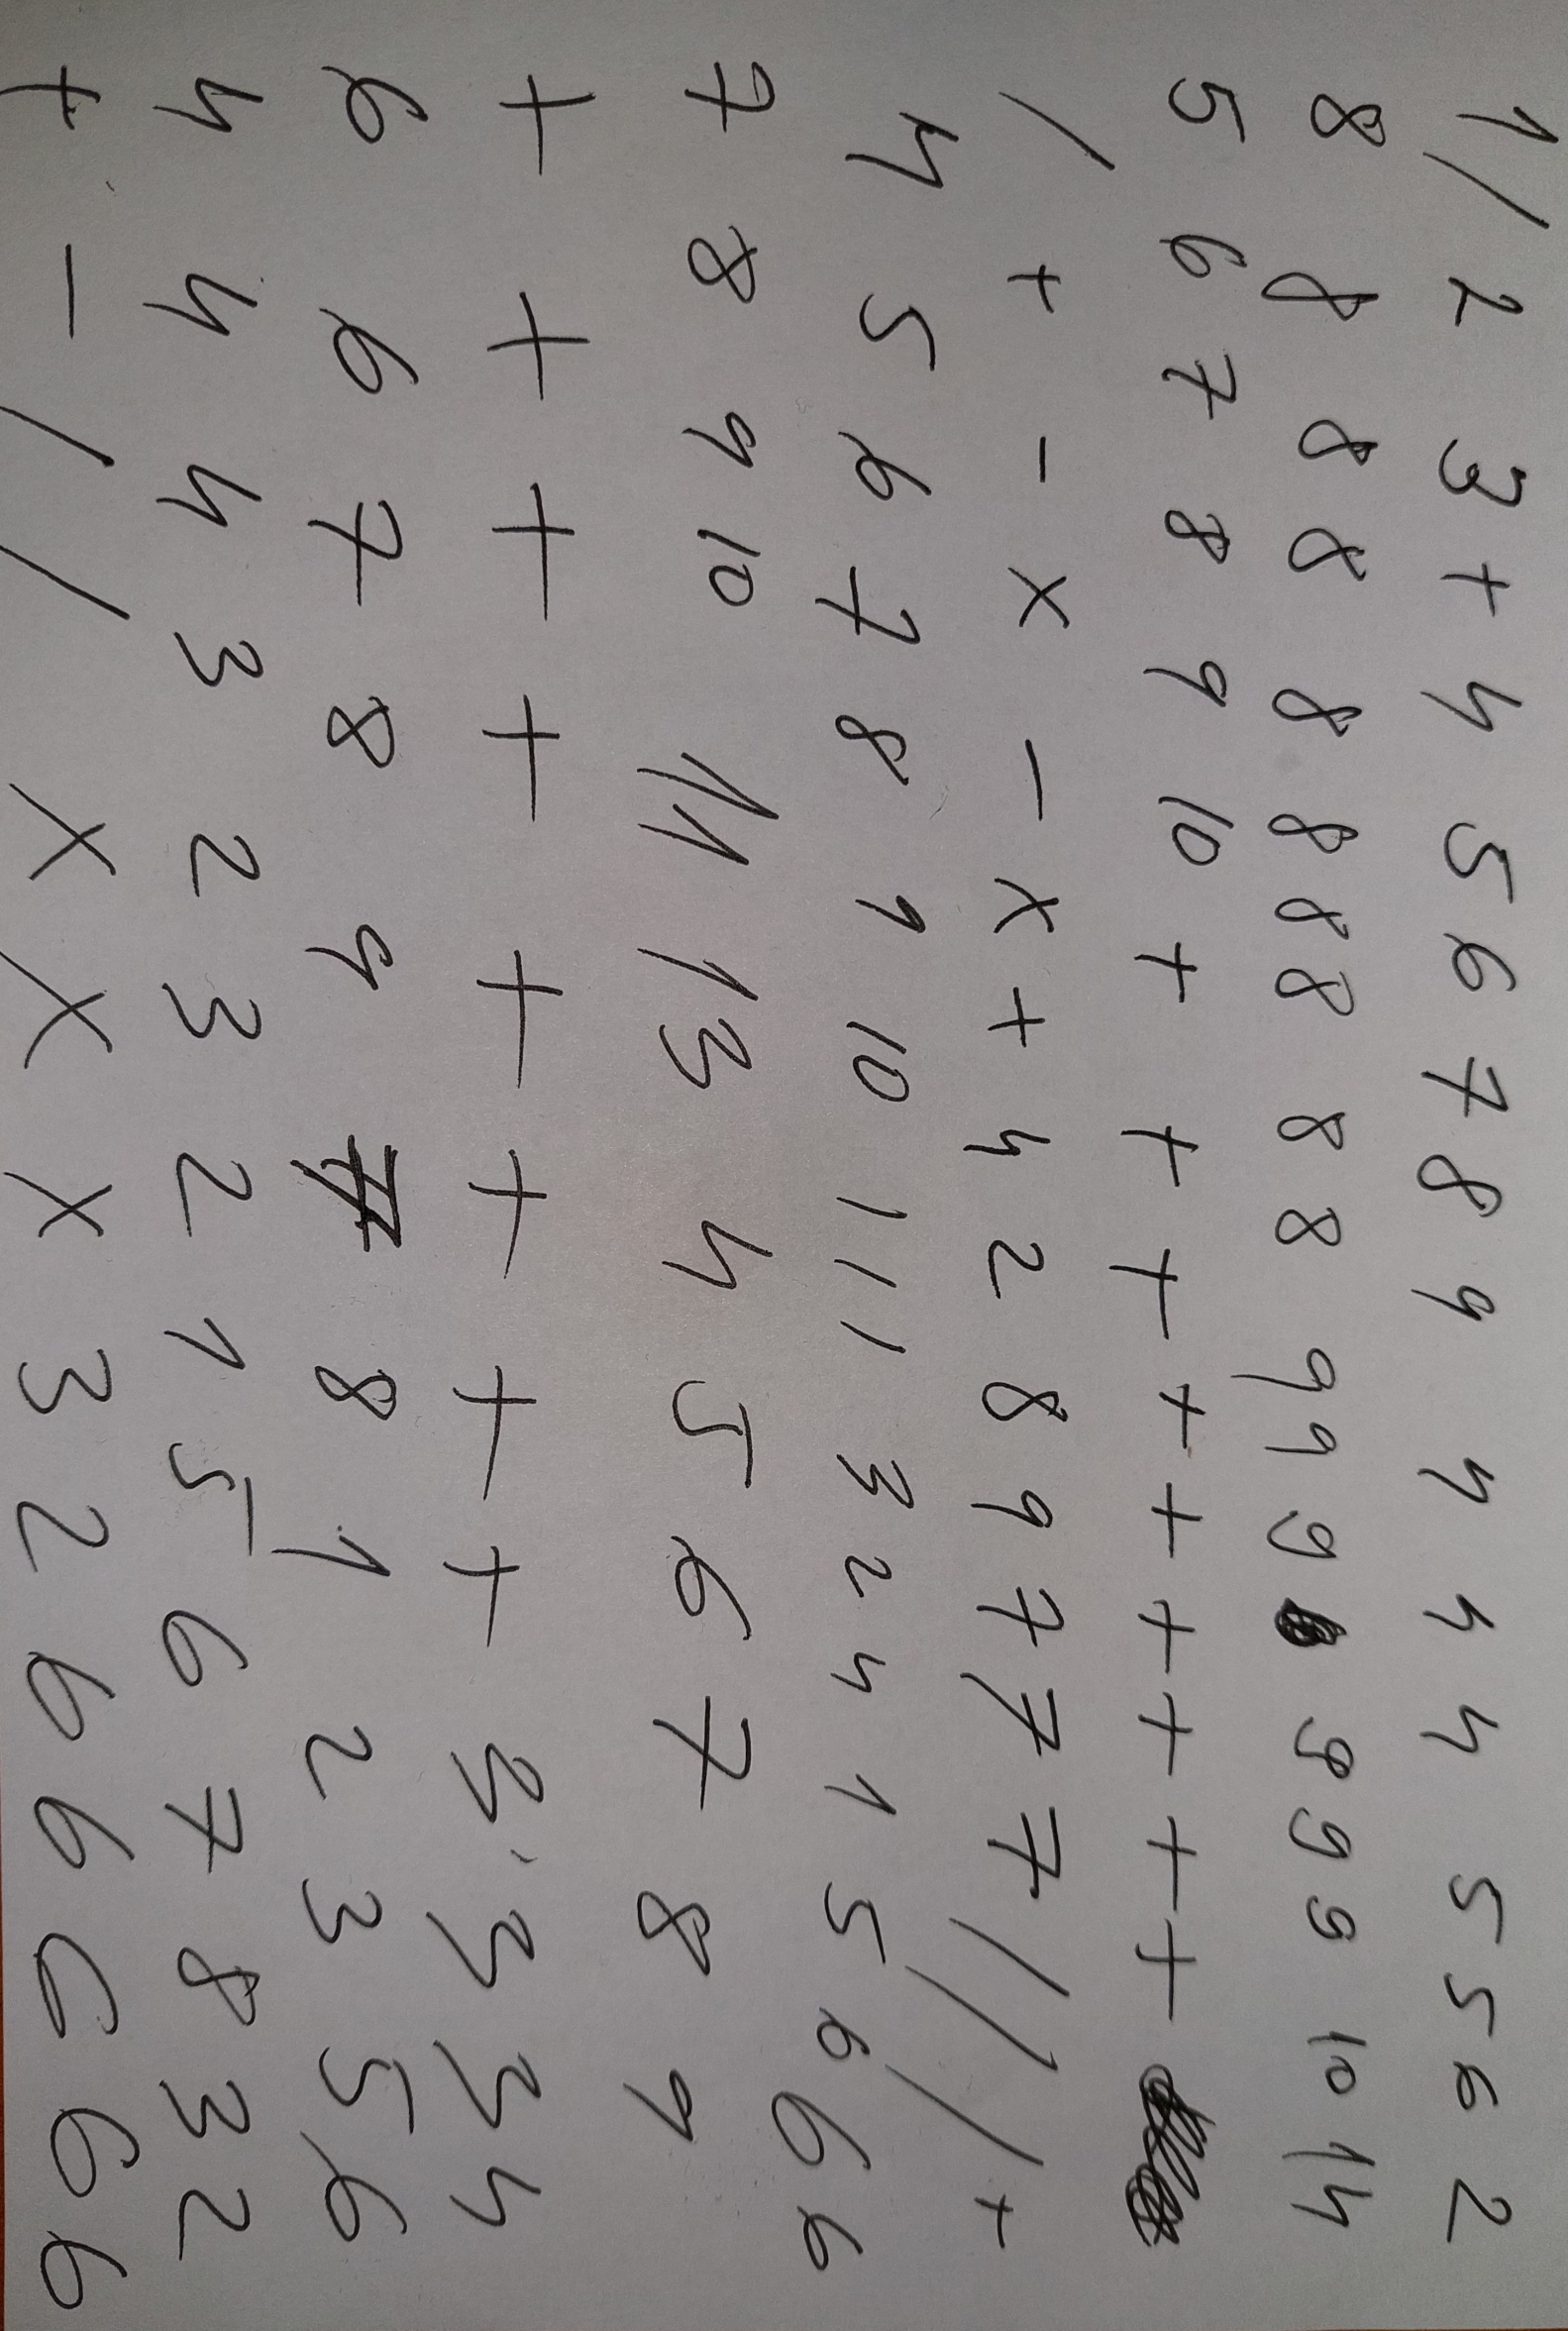 1 / 2 3 + 4 5 6 7 8 9 4 4 4 5 5 6 2
8 8 8 8 8 8 8 8 8 8 9 9 9 9 9 9 10 14
5 6 7 8 9 10 + + + + + + + + +
/ + - x - x + 4 2 8 9 7 7 7 / / / +
4 5 6 7 8 9 10 1 1 1 3 2 4 1 5 6 6 6
7 8 9 10 11 13 4 5 6 7 8 9
+ + + + + + + + 3 3 3 4
6 6 7 8 9 7 8 1 2 3 5 6
4 4 4 3 2 3 2 1 5 6 7 8 3 2
+ - / / x x x 3 2 6 6 6 6 6